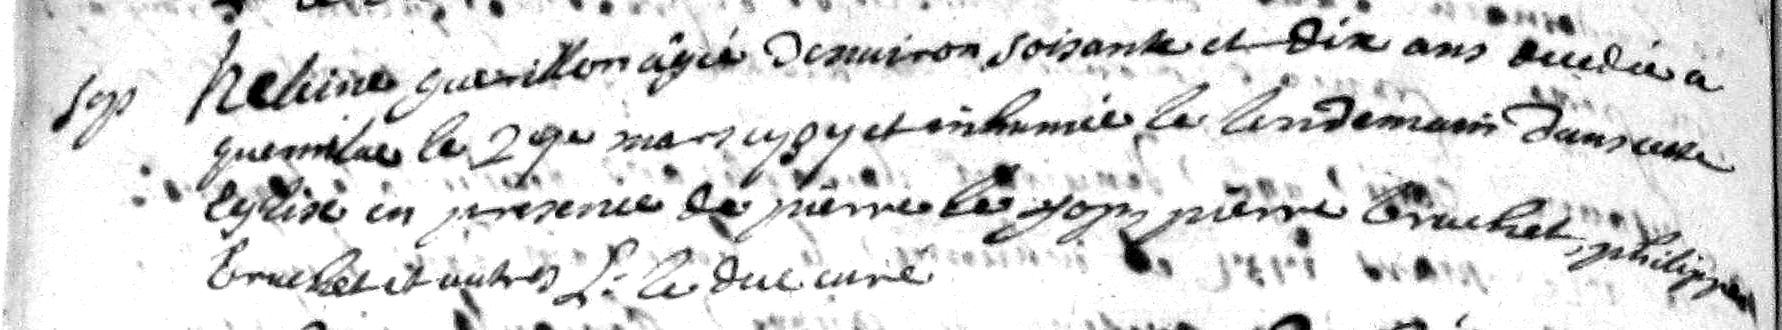 guerillon âgée denuiron soisante et dix ans decedée a
le 29e mars et inhumée le lendemain dans cette
Eglise en presence de pierre le pierre bruchet, philippe
bruchet et autres L. le duc curé